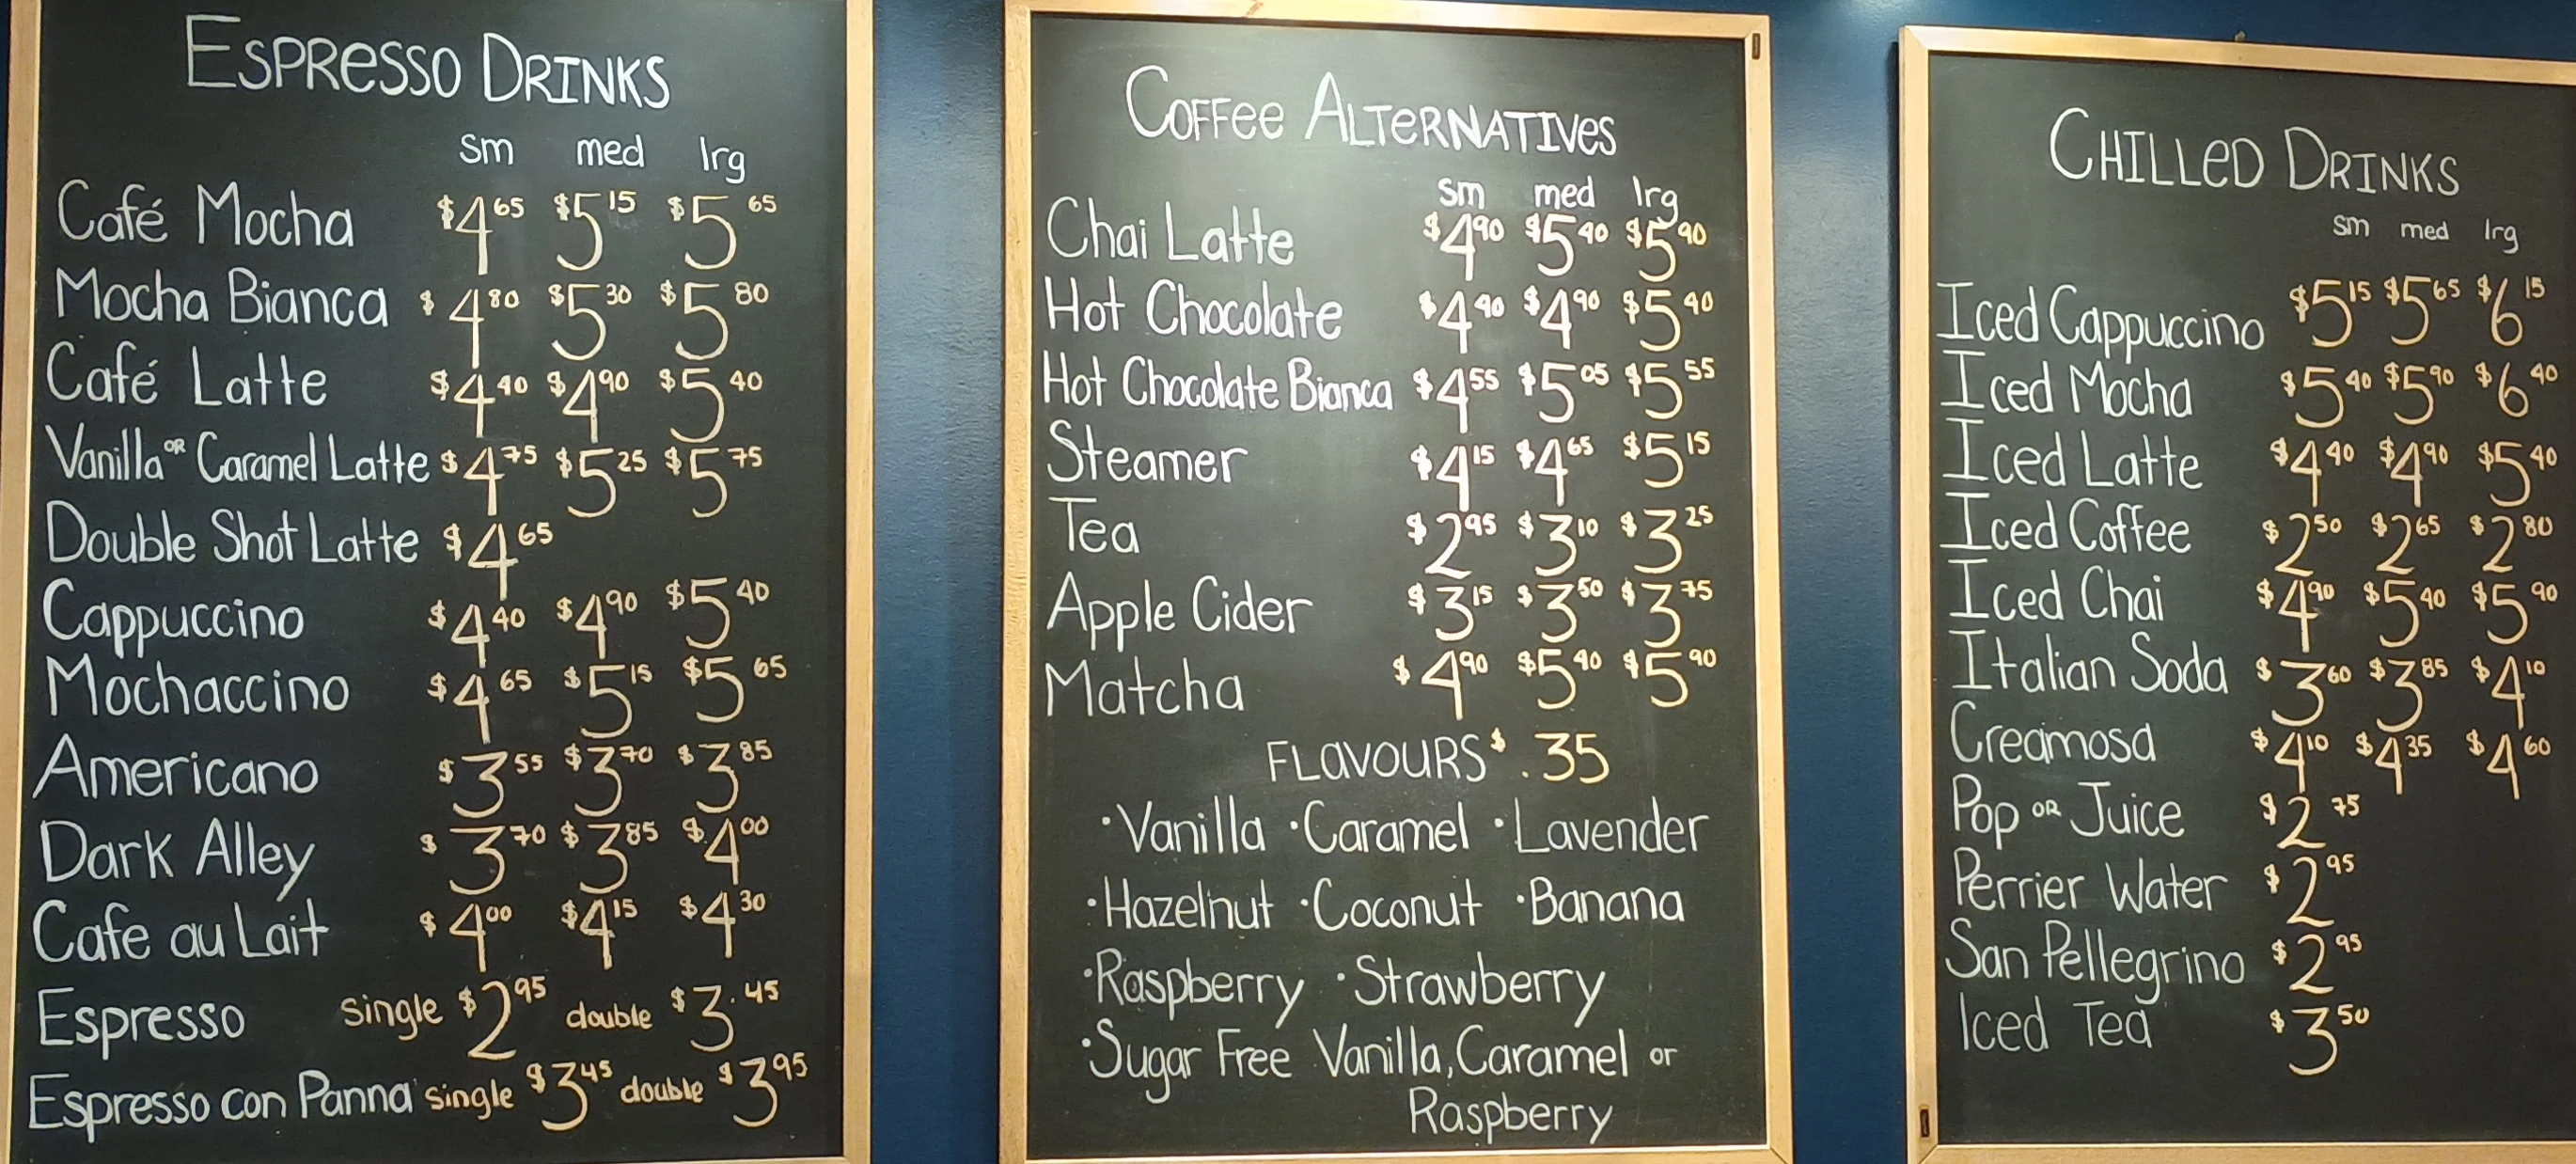 ESPRESSO DRINKS
sm med lrg
Café Mocha $4.65 $5.15 $5.65
Mocha Bianca $4.80 $5.30 $5.80
Café Latte $4.40 $4.90 $5.40
Vanilla OR Caramel Latte $4.75 $5.25 $5.75
Double Shot Latte $4.65
Cappuccino $4.40 $4.90 $5.40
Mochaccino $4.65 $5.15 $5.65
Americano $3.55 $3.70 $3.85
Dark Alley $3.70 $3.85 $4.00
Cafe au Lait $4.00 $4.15 $4.30
Espresso single $2.95 double $3.45
Espresso con Panna single $3.45 double $3.95
COFFEE ALTERNATIVES
sm med lrg
Chai Latte $4.90 $5.40 $5.90
Hot Chocolate $4.40 $4.90 $5.40
Hot Chocolate Bianca $4.55 $5.05 $5.55
Steamer $4.15 $4.65 $5.15
Tea $2.95 $3.10 $3.25
Apple Cider $3.15 $3.50 $3.75
Matcha $4.90 $5.40 $5.90
FLAVOURS $.35
•Vanilla •Caramel •Lavender
•Hazelnut •Coconut •Banana
•Raspberry •Strawberry
•Sugar Free Vanilla, Caramel or
Raspberry
CHILLED DRINKS
sm med lrg
Iced Cappuccino $5.15 $5.65 $6.15
Iced Mocha $5.40 $5.90 $6.40
Iced Latte $4.40 $4.90 $5.40
Iced Coffee $2.50 $2.65 $2.80
Iced Chai $4.90 $5.40 $5.90
Italian Soda $3.60 $3.85 $4.10
Creamosa $4.10 $4.35 $4.60
Pop OR Juice $2.75
Perrier Water $2.95
San Pellegrino $2.95
Iced Tea $3.50